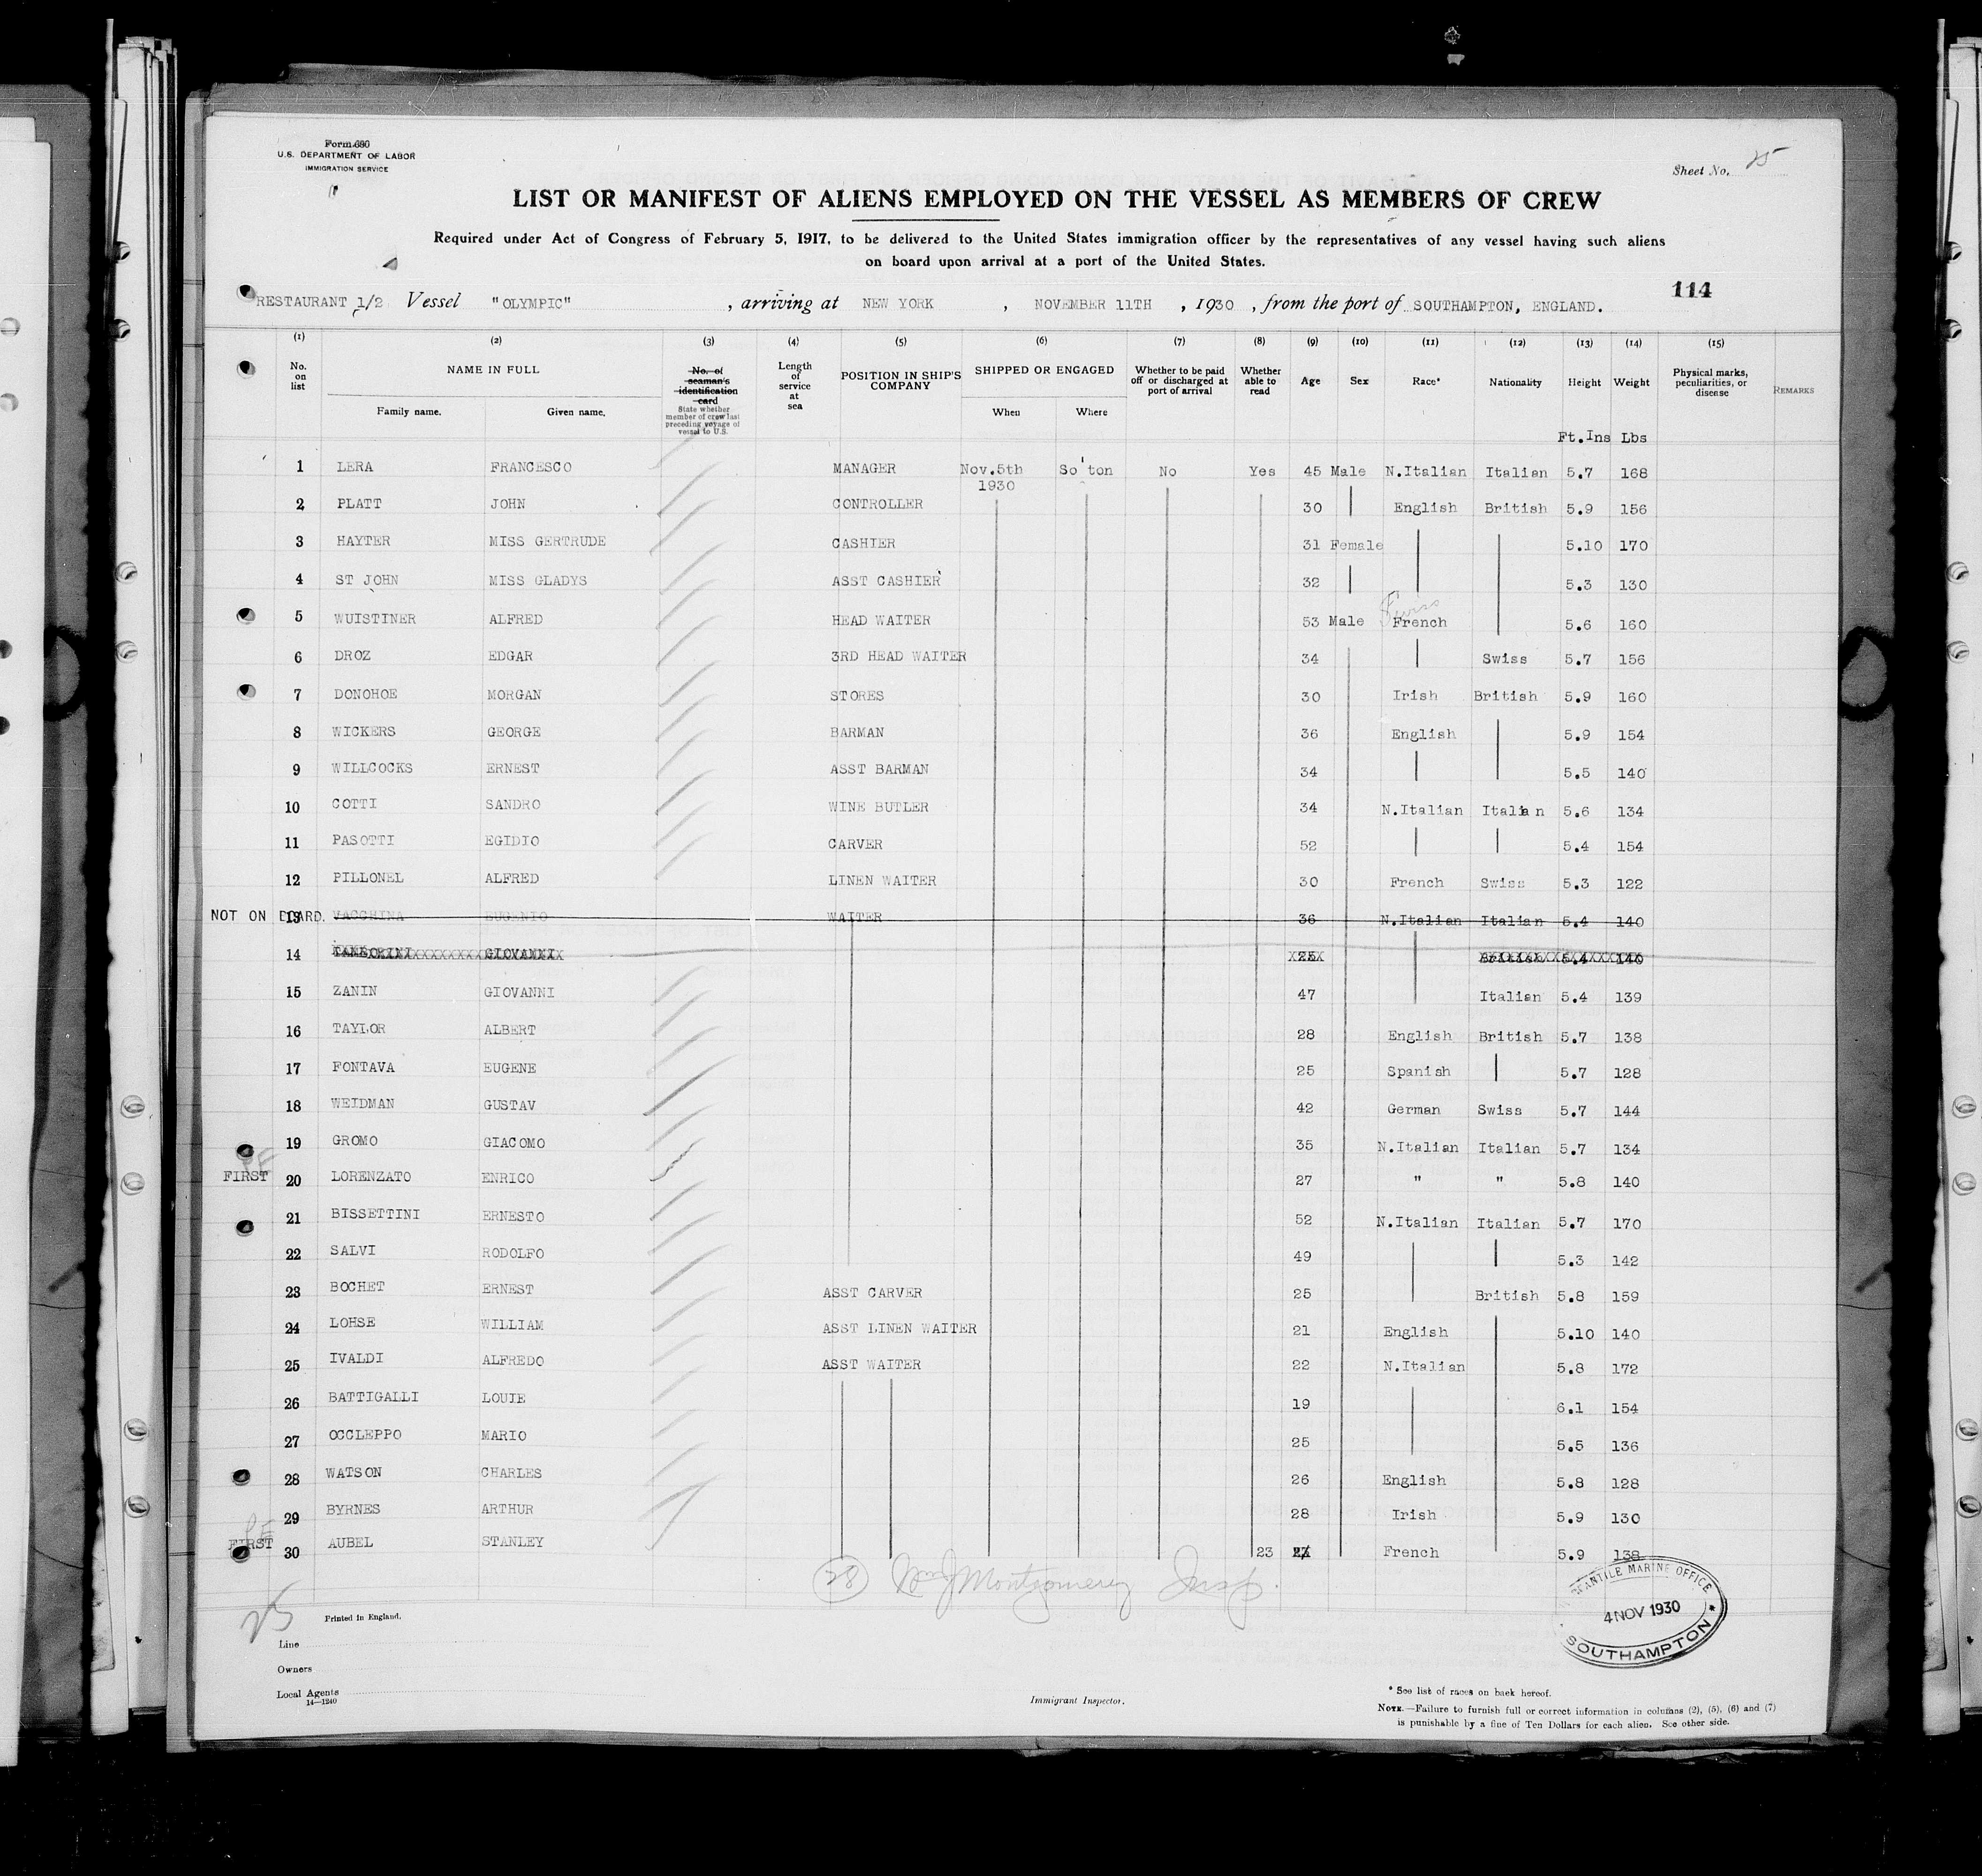 Form 680
U.S. DEPARTMENT OF LABOR
IMMIGRATION SERVICE
Sheet No. 25
LIST OR MANIFEST OF ALIENS EMPLOYED ON THE VESSEL AS MEMBERS OF CREW
Required under Act of Congress of February 5, 1917, to be delivered to the United States immigration officer by the representatives of any vessel having such aliens
on board upon arrival at a port of the United States.
114
RESTAURANT 1/2 Vessel "OLYMPIC", arriving at NEW YORK, NOVEMBER 11TH, 1930, from the port of SOUTHAMPTON, ENGLAND.
(1) (2) (3) (4) (5) (6) (7) (8) (9) (10) (11) (12) (13) (14) (15)
No. on list NAME IN FULL Family name. Given name. No. of seaman's identification card State whether member of crew last preceding voyage of vessel to U.S. Length of service at sea POSITION IN SHIP'S COMPANY SHIPPED OR ENGAGED When Where Whether to be paid off or discharged at port of arrival Whether able to read Age Sex Race* Nationality Height Weight Physical marks, peculiarities, or disease REMARKS
Ft.Ins Lbs
1 LERA FRANCESCO MANAGER Nov.5th 1930 So'ton No Yes 45 Male N.Italian Italian 5.7 168
2 PLATT JOHN CONTROLLER 30 English British 5.9 156
3 HAYTER MISS GERTRUDE CASHIER 31 Female 5.10 170
4 ST JOHN MISS GLADYS ASST CASHIER 32 5.3 130
5 WUISTINER ALFRED HEAD WAITER 53 Male Swiss French 5.6 160
6 DROZ EDGAR 3RD HEAD WAITER 34 Swiss 5.7 156
7 DONOHOE MORGAN STORES 30 Irish British 5.9 160
8 WICKERS GEORGE BARMAN 36 English 5.9 154
9 WILLCOCKS ERNEST ASST BARMAN 34 5.5 140
10 COTTI SANDRO WINE BUTLER 34 N.Italian Italian 5.6 134
11 PASOTTI EGIDIO CARVER 52 5.4 154
12 PILLONEL ALFRED LINEN WAITER 30 French Swiss 5.3 122
NOT ON BOARD. 13 VACCHINA EUGENIO WAITER 36 N.Italian Italian 5.4 140
14 TAMBORINI GIOVANNI 25 British 5.4 140
15 ZANIN GIOVANNI 47 Italian 5.4 139
16 TAYLOR ALBERT 28 English British 5.7 138
17 FONTAVA EUGENE 25 Spanish 5.7 128
18 WEIDMAN GUSTAV 42 German Swiss 5.7 144
19 GROMO GIACOMO 35 N.Italian Italian 5.7 134
PE
FIRST 20 LORENZATO ENRICO 27 " " 5.8 140
21 BISSETTINI ERNESTO 52 N.Italian Italian 5.7 170
22 SALVI RODOLFO 49 5.3 142
23 BOCHET ERNEST ASST CARVER 25 British 5.8 159
24 LOHSE WILLIAM ASST LINEN WAITER 21 English 5.10 140
25 IVALDI ALFREDO ASST WAITER 22 N.Italian 5.8 172
26 BATTIGALLI LOUIE 19 6.1 154
27 OCCLEPPO MARIO 25 5.5 136
28 WATSON CHARLES 26 English 5.8 128
29 BYRNES ARTHUR 28 Irish 5.9 130
PE
FIRST 30 AUBEL STANLEY 23 French 5.9 138
28 Wm J Montgomery Insp.
MERCANTILE MARINE OFFICE
4 NOV 1930
SOUTHAMPTON
25
Printed in England.
Line
Owners
Local Agents
14—1240
Immigrant Inspector.
* See list of races on back hereof.
NOTE.—Failure to furnish full or correct information in columns (2), (5), (6) and (7)
is punishable by a fine of Ten Dollars for each alien. See other side.